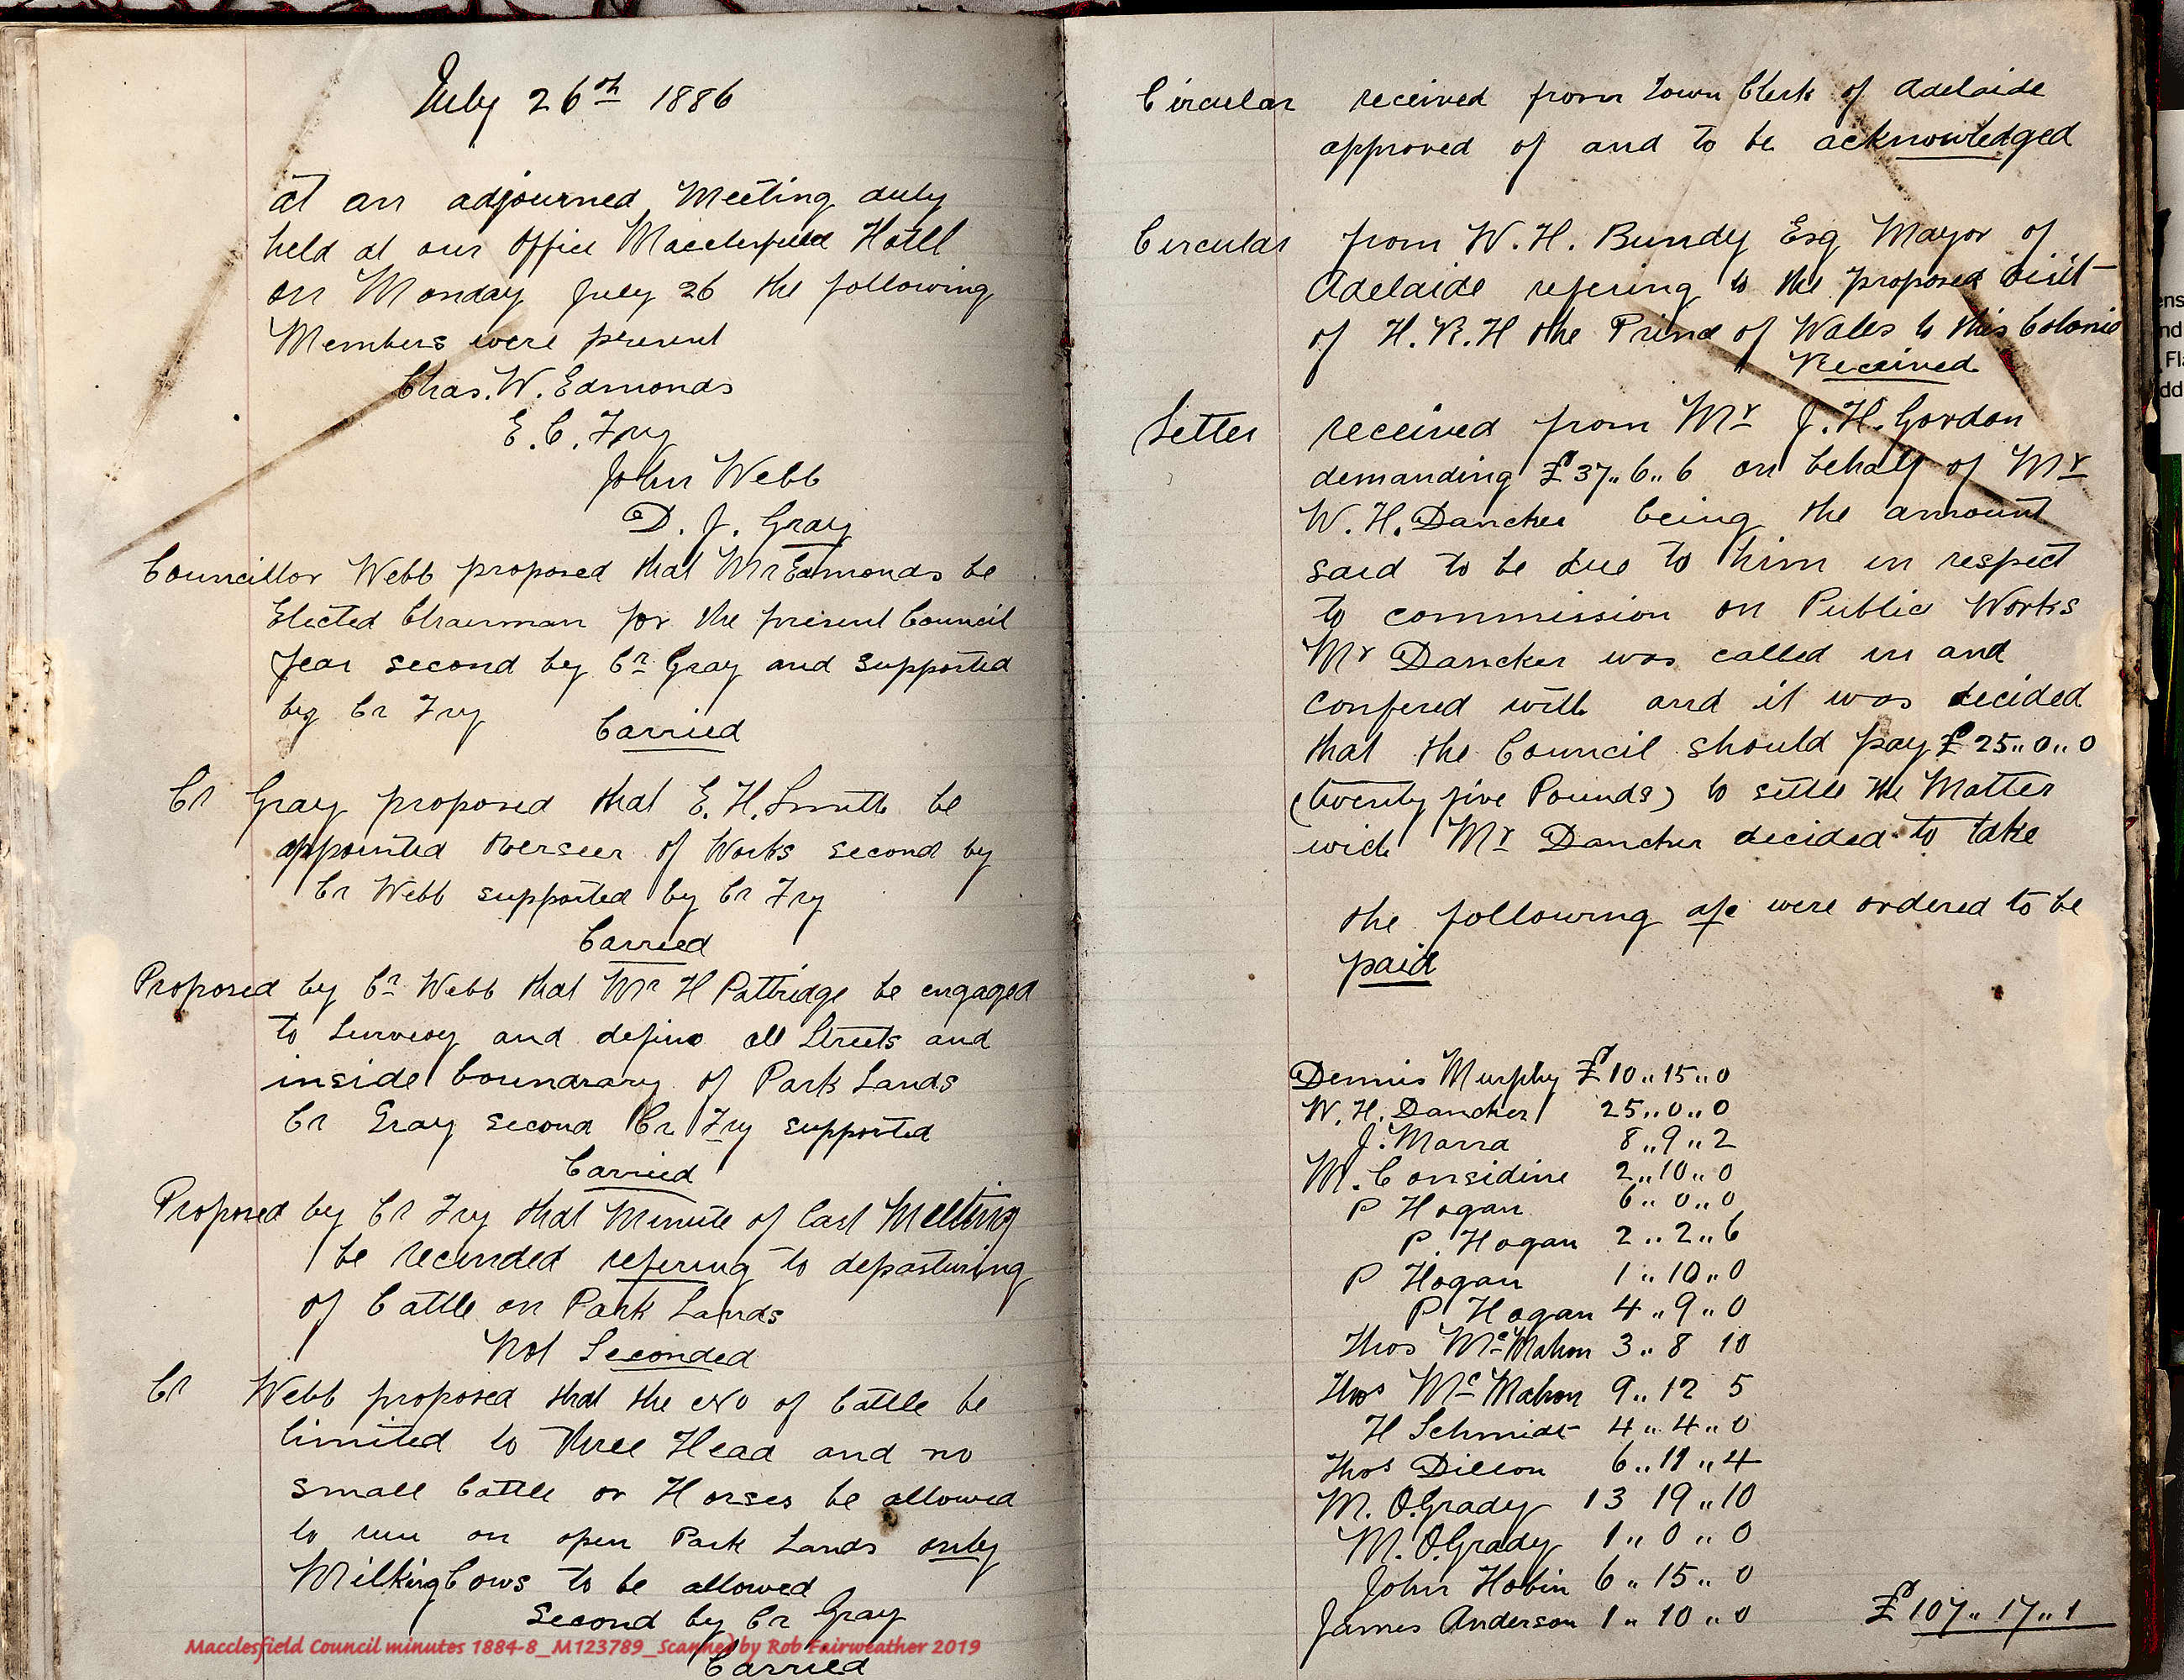 July 26th 1886
at an adjourned Meeting duly
held at our Office Macclesfield Hotel
on Monday July 26 the following
Members were present
Chas. W. Edmonds
E. C. Fry
John Webb
D. J. Gray
Councillor Webb proposed that Mr Edmonds be
Elected Chairman for the present Council
year second by Cr Gray and supported
by Cr Fry
Carried
Cr Gray proposed that E. H. Smith be
appointed Overseer of Works second by
Cr Webb supported by Cr Fry
Carried
Proposed by Cr Webb that Mr H Pattridge be engaged
to Survey and define all Streets and
inside boundrary of Park Lands
Cr Gray second Cr Fry supported
Carried
Proposed by Cr Fry that Minute of last Meeting
be recinded refering to depasturing
of Cattle on Park Lands
Not Seconded
Cr Webb proposed that the No of Cattle be
limited to three Head and no
small Cattle or Horses be allowed
to run on open Park Lands only
Milking Cows to be allowed
Second by Cr Gray
Carried
Macclesfield Council minutes 1884-8_M123789_Scanned by Rob Fairweather 2019
Circular received from Town Clerk of Adelaide
approved of and to be acknowledged
Circular from W. H. Bundy Esq Mayor of
Adelaide refering to the proposed visit
of H. R. H the Prince of Wales to this Colonie
Received
Letter received from Mr J. H. Gordon
demanding £37..6..6 on behalf of Mr
W. H. Dancker being the amount
said to be due to him in respect
to commission on Public Works
Mr Dancker was called in and
confered with and it was decided
that the Council should pay £25..0..0
(twenty five Pounds) to settle the Matter
wich Mr Dancker decided to take
the following a/c were ordered to be
paid
Dennis Murphy £10..15..0
W. H. Dancker 25..0..0
J. Marra 8..9..2
M. Considine 2..10..0
P Hogan 6..0..0
P. Hogan 2..2..6
P Hogan 1..10..0
P. Hogan 4..9..0
Thos McMahon 3..8 10
Thos McMahon 9..12 5
H Schmidt 4..4..0
Thos Dillon 6..11..4
M. O.Grady 13 19..10
M. O.Grady 1..0..0
John Hobin 6..15..0
James Anderson 1..10..0 £107..17..1